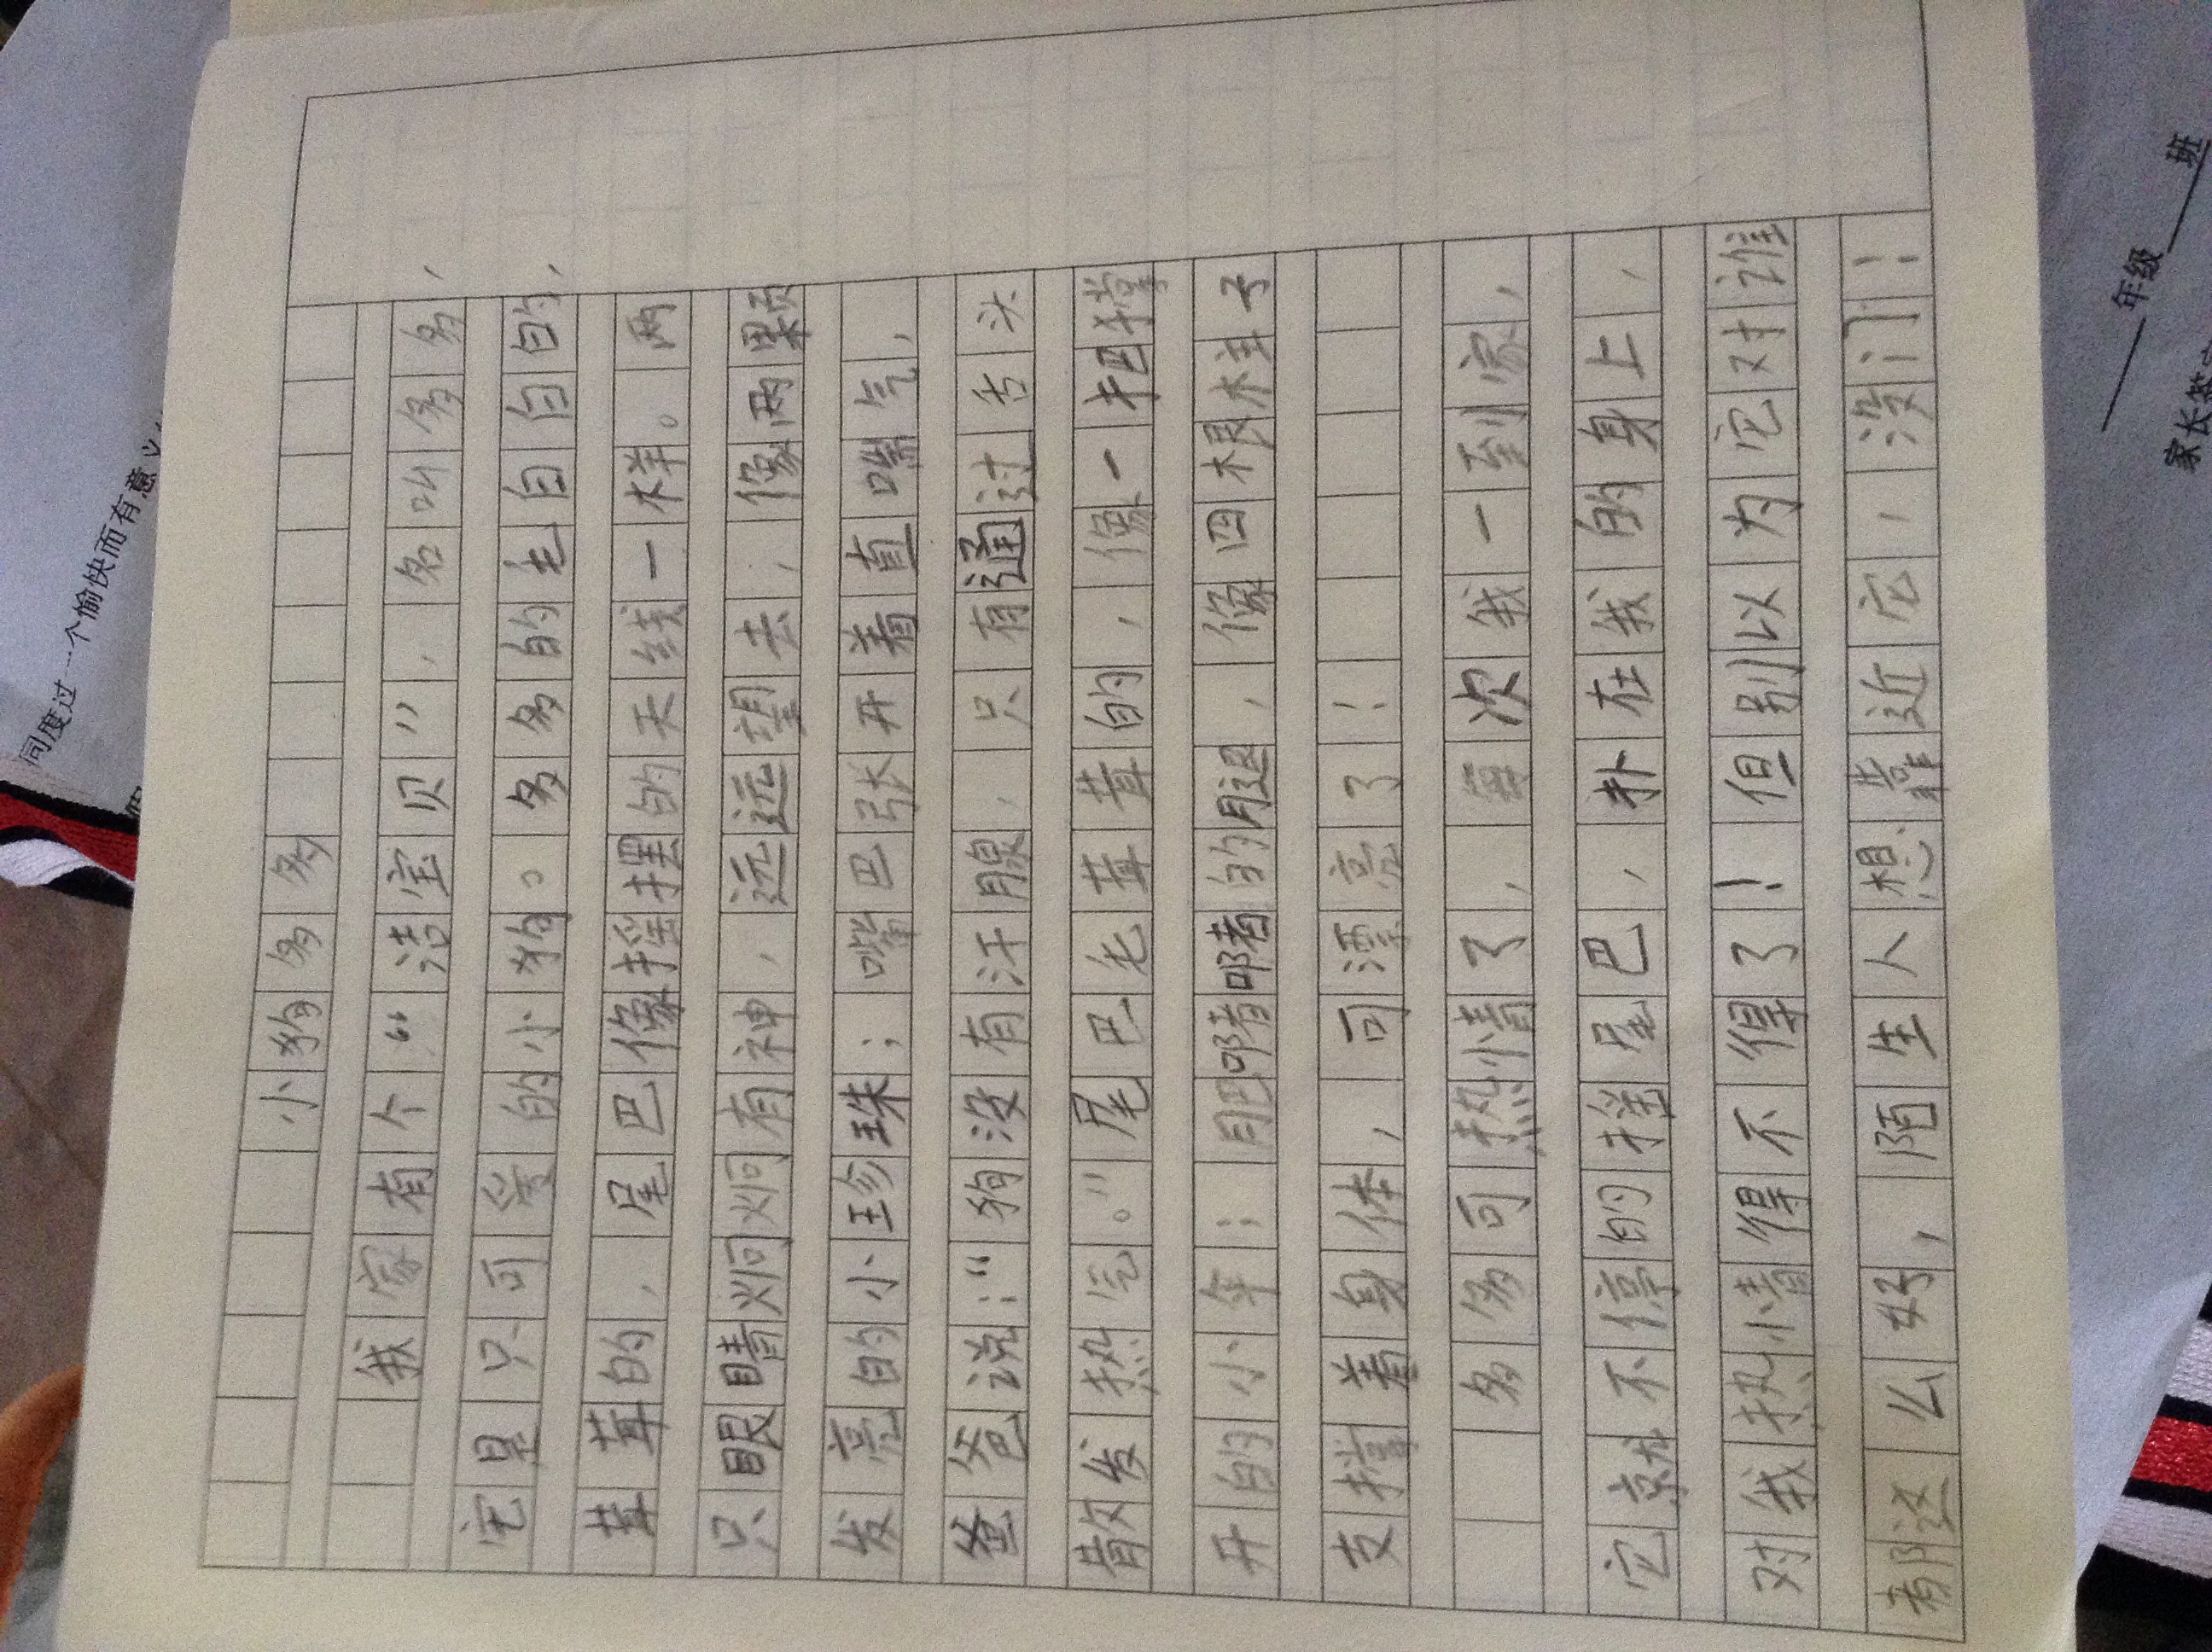 小狗多多
我家有个“活宝贝”，名叫多多，
它是只可爱的小狗。多多的毛白白的，
茸茸的，尾巴像摇摆的天线一样。两
只眼睛炯炯有神，远远望去，像两颗
发亮的小珍珠；嘴巴张开着直喘气，
爸爸说：“狗没有汗腺，只有通过舌头
散发热气。”尾巴毛茸茸的，像一把撑
开的小伞；肥嘟嘟的腿，像四根柱子
支撑着身体，可漂亮了！
多多可热情了，每次我一到家，
它就不停的摇尾巴，扑在我的身上，
对我热情得不得了！但别以为它对谁
都这么好，陌生人想靠近它，没门！
同度过一个愉快而有意义
年级 班
家长签字